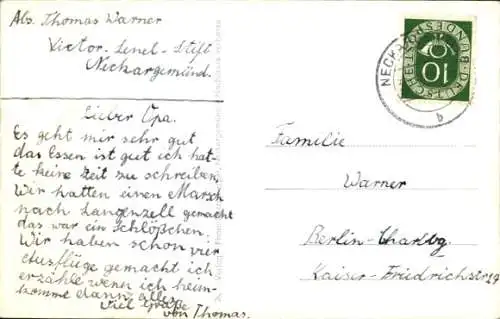 Abs. Thomas Warner
Victor-Lenel-Stift
Neckargemünd.
Lieber Opa.
Es geht mir sehr gut
das Essen ist gut ich hat-
te keine Zeit zu schreiben.
Wir hatten einen Marsch
nach Langenzell gemacht
das war ein Schlößchen.
Wir haben schon vier
Ausflüge gemacht ich
erzähle wenn ich heim-
komme dann alles
viel Grüße
von Thomas.
DEUTSCHE BUNDESPOST
10
NECKAR
b
Familie
Warner
Berlin-Charlbg
Kaiser-Friedrichstr 19